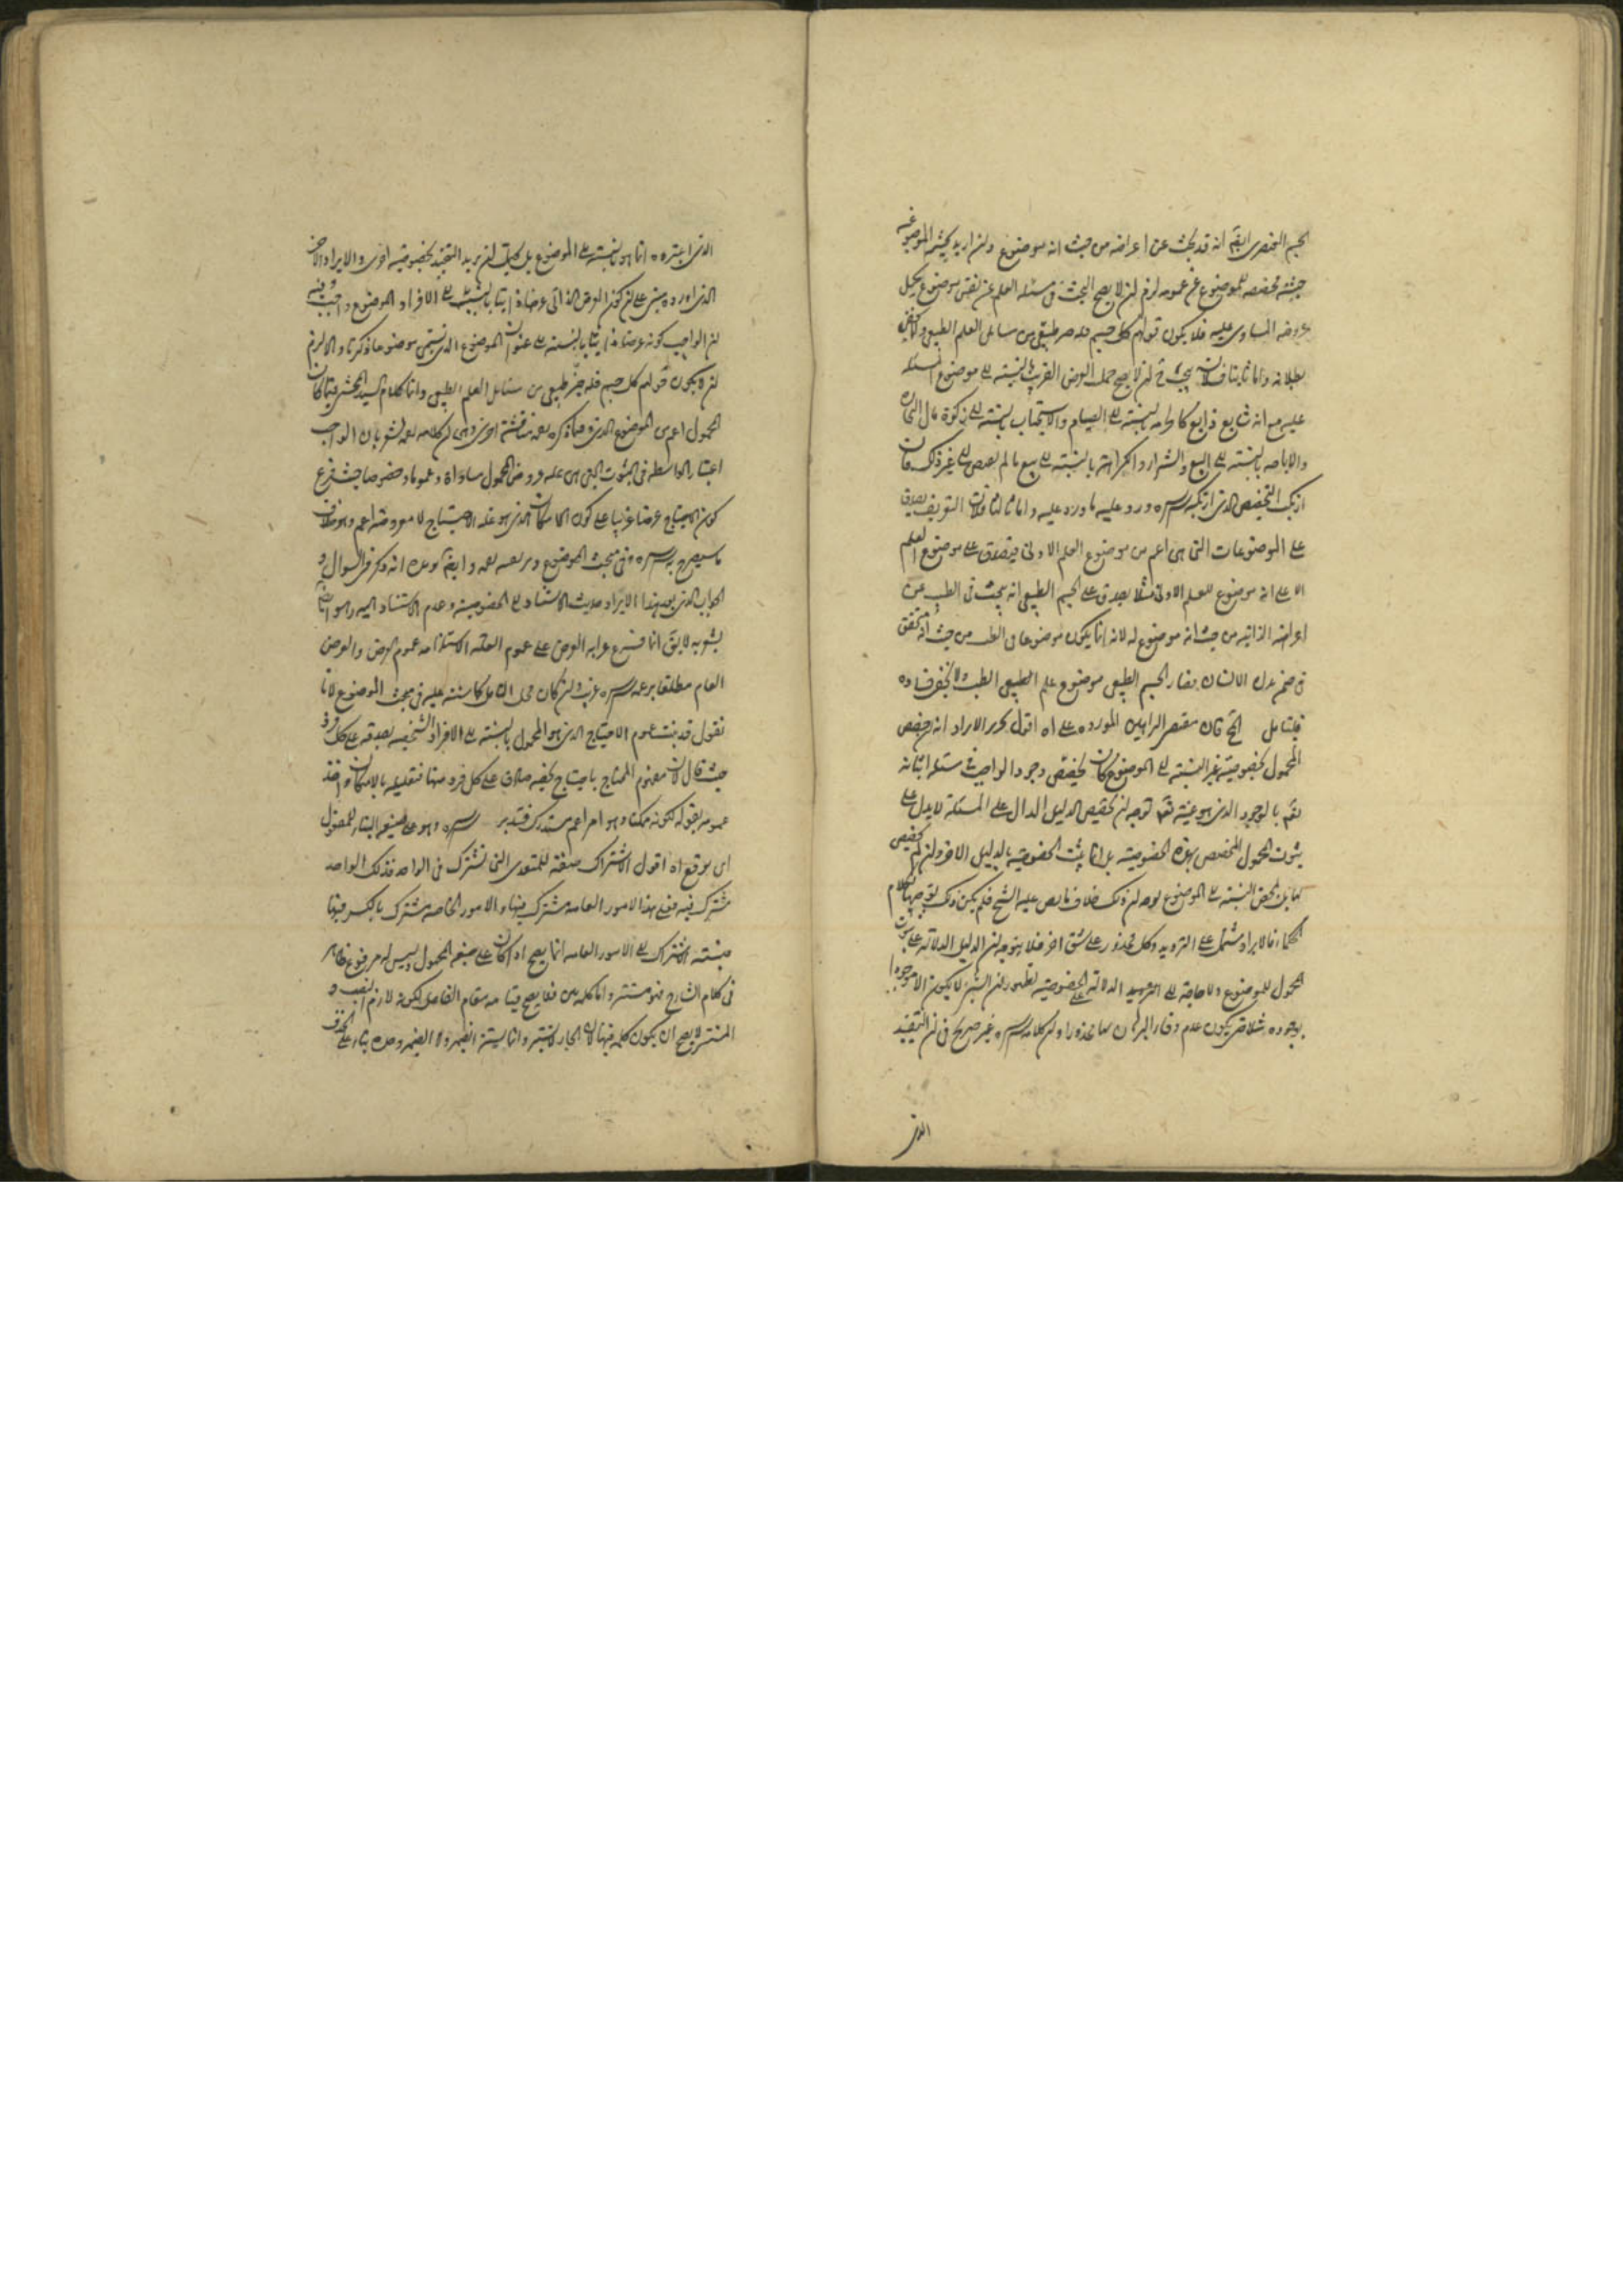 الجسم العنصرى ايضا انه قد يبحث عن اعراضه من حيث انه موضوع وان اريد بحيث الموضوعية
حيثية مخصصة للموضوع عن عمومه لزم ان لا يصح البحث فى مسئلة العلم عن نفس موضوع بحمل
عروضه المساوى عليه فلا يكون قولهم كل جسم فله حيز طبيعى من مسائل العلم الطبيعى ولا يخفى
بطلانه واما ثانيا فلان يجب ح ان لا يصح حمل العرض الغريب بالنسبة الى موضوع المسئلة
عليه مع انه شايع ذايع كالحرامة بالنسبة الى الصيام والاستحباب بالنسبة الى زكوة مال التجارة
والاباحة بالنسبة الى البيع والشراء والكراهة بالنسبة الى بيع ما لم يقبض الى غير ذلك فان
ارتكب التخصيص الذى ارتكبه سره ورد عليه ما ورد عليه واما ثالثا فلان التعريف يصدق
على الموضوعات التى هى اعم من موضوع العلم الادنى فيصدق على موضوع العلم
الاعلى انه موضوع للعلم الادنى مثلا يصدق على الجسم الطبيعى انه يبحث فى الطب عن
اعراضه الذاتية من حيث انه موضوع له لانه انما يكون موضوعا فى الطب من حيث انه تحقق
فى ضمن بدن الانسان فصار الجسم الطبيعى موضوع علم الطبيعى الطب ولا يخفى فساده
فليتامل الخ فان مقتضى البراهين الموردة على اه اقول تحرير الايراد انه ان خصص
المحمول بخصوصية غير النسبة الى الموضوع كان تخصيص وجود الواجب فى مسئلة اثباته
تعم بالوجود الذى هو عينه تعم توجه ان تخصيص الدليل الدال على المسئلة لا يدل على
ثبوت المحمول المخصص بهذه الخصوصية بل انما يثبت الخصوصية بالدليل الاخر وان لم يخصص
بها بل بمحض النسبة الى الموضوع توجه ان ذلك خلاف ما نص عليه الشيخ فلم يكن ذلك توجيها لكلام
الحكماء فالايراد مشتمل على الترديد وكل محذور على شق اخر فلا يتوجه ان الدليل الدلالة على ثبوت
المحمول للموضوع ولا حاجة الى الترديد الدلالة على الخصوصية لظهور ان الشئ لا يكون الا موجودا
بوجوده مثلا حتى يكون عدم وفاء البرهان بها محذورا وان كلامه سره غير صريح فى ان التقييد
الذى
الذى اعتبره انما هو بالنسبة الى الموضوع بل يحتمل ان يريد التقييد بخصوصية اخرى والايراد الاخر
الذى اورده مبنى على ان كون العرض الذاتى عرضا ذاتيا بالنسبة الى الافراد الموضوع واجب وفيه
ان الواجب كونه عرضا ذاتيا بالنسبة الى عنوان الموضوع الذى يسمى موضوعا ذكريا والا لزم
ان لا يكون قولهم كل جسم فله حيز طبيعى من مسائل العلم الطبيعى واما كلام السيد المحشى فيما كان
المحمول اعم من الموضوع الذى وقد ذكره بعد مناقشة اخرى وهى ان كلامه بعد يشعر بان الواجب
اعتبار الواسطة فى الثبوت التى هى علة وروض المحمول مساواة وعموما وخصوصا حيث فرع
كون الاحتياج عرضا غريبا على كون الامكان الذى هو علة الاحتياج لا معروضه اعم وهو خلاف
ما سيصرح به سره فى مبحث الموضوع وايضا يرد انه ذكر فى السؤال و
الجواب الذى بعد هذا الايراد حديث الاستناد الى الخصوصية وعدم الاستناد اليه وهو ايضا
يشعر به لا يق انما فرع غرابة العرض على عموم العلة لاستلزامه عموم العرض والعرض
العام مطلقا يرعه سره غريب وان كان محل التامل كما سننبه عليه فى مبحث الموضوع لانا
نقول قد يثبت عموم الاحتياج الذى هو المحمول بالنسبة الى الافراد الشخصية لصدقه على كل فرد
حيث قال لان مفهوم المحتاج باحتياج بخصه صادق على كل فرد منها فتعليله بالامكان واخذ
عمومه بقوله لكونه ممكنا وهو امر اعم مستدرك فتدبر سره وهو على صيغة البناء للمفعول
اى موقع اه اقول الاشتراك صفة للمتعدى التى تشترك فى الواحد فذلك الواحد
مشترك فيه فعلى هذا الامور العامة مشترك فيها والامور الخاصة مشترك بالكسر فيها
فنسبة الاشتراك الى الامور العامة انما يصح اذا كان على صيغة المجهول وليس له مرفوع ظاهر
فى كلام الشارح فهو مستتر واما كلمة بين فلا يصح قيامه مقام الفاعل لكونه لازم النصب و
المستتر لا يصح ان يكون كلمة فيها لان الجار لا يستتر وانما يستتر الضمير ولا الضمير وحده بناء على الحذف